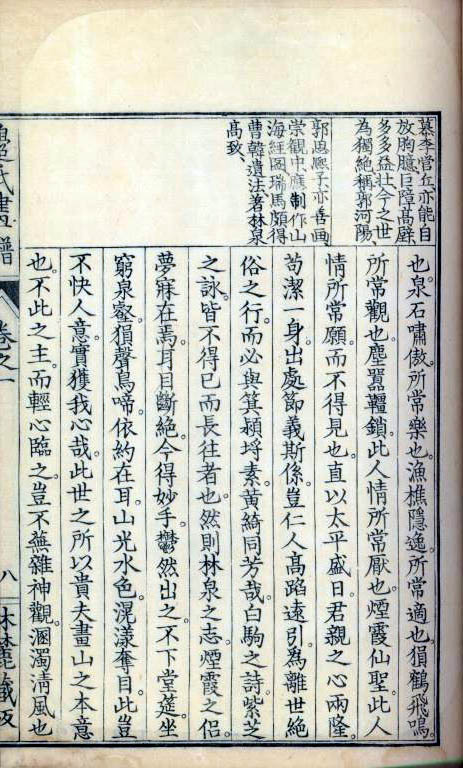 慕李營丘亦能自
放胸臆巨障高壁
多多益壯今之世
為獨絕稱郭河陽
郭思熙子亦善画
崇觀中應制作山
海經圖瑞馬頗得
曹韓遺法著林泉
高致
也。泉石嘯傲。所常樂也。漁樵隱逸。所常適也。猿鶴飛鳴。
所常觀也。塵囂韁鎖。此人情所常厭也。煙霞仙聖。此人
情所常願。而不得見也。直以太平盛日。君親之心兩隆。
苟潔一身。出處節義斯係。豈仁人高蹈遠引。為離世絕
俗之行。而必與箕潁埒素。黃綺同芳哉。白駒之詩。紫芝
之詠。皆不得已而長往者也。然則林泉之志。煙霞之侶。
夢寐在焉。耳目斷絕。今得妙手。鬱然出之。不下堂筵。坐
窮泉壑。猿聲鳥啼。依約在耳。山光水色。滉漾奪目。此豈
不快人意。實獲我心哉。此世之所以貴夫畫山之本意
也。不此之主。而輕心臨之。豈不蕪雜神觀。溷濁清風也
氏畫譜
卷之一
八